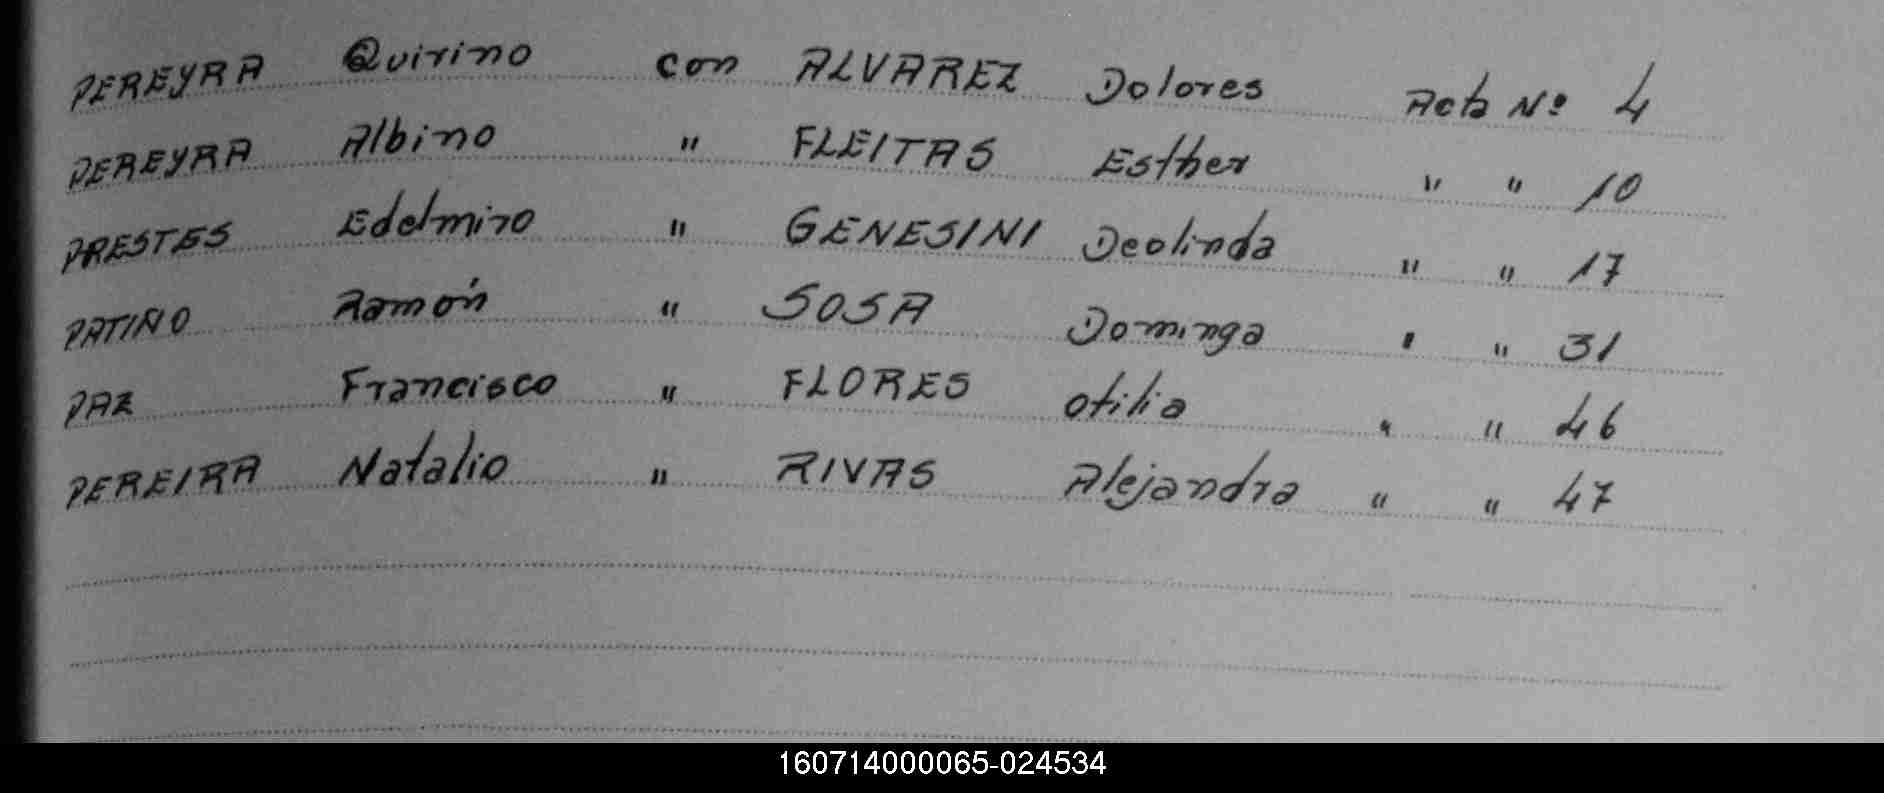 PEREYRA Quirino con ALVAREZ Dolores Acta Nº 4
PEREYRA Albino " FLEITAS Esther " " 10
PRESTES Edelmiro " GENESINI Deolinda " " 17
PATIÑO Ramón " SOSA Dominga " " 31
PAZ Francisco " FLORES Otilia " " 46
PEREIRA Natalio " RIVAS Alejandra " " 47
160714000065-024534